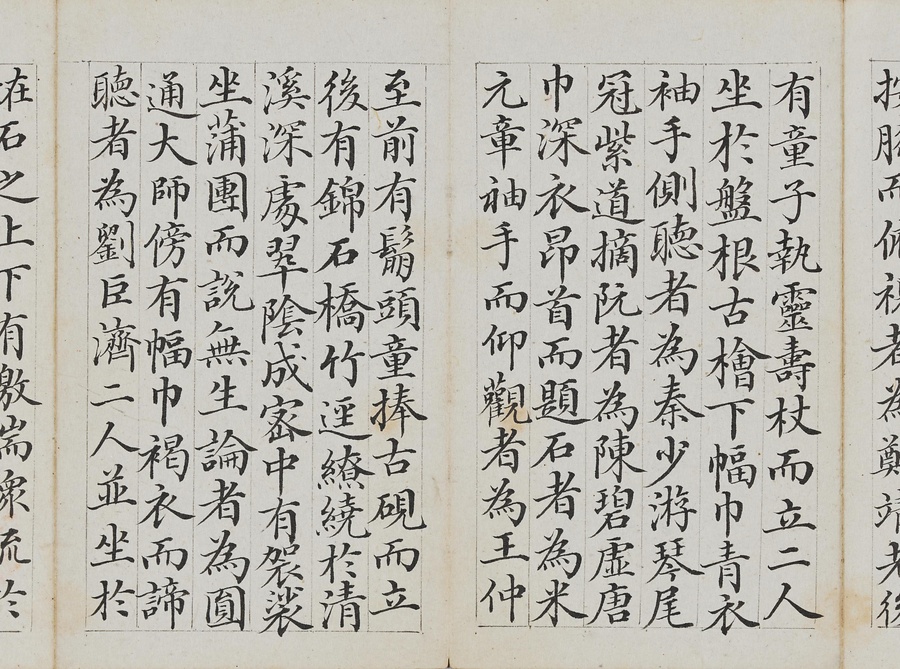 按膝而俯視者為鄭靖老後
有童子執靈壽杖而立二人
坐於盤根古檜下幅巾青衣
袖手側聽者為秦少游琴尾
冠紫道摘阮者為陳碧虛唐
巾深衣昂首而題石者為米
元章袖手而仰觀者為王仲
至前有鬅頭童捧古硯而立
後有錦石橋竹逕繚繞於清
溪深處翠陰成密中有袈裟
坐蒲團而說無生論者為圓
通大師傍有幅巾褐衣而諦
聽者為劉巨濟二人並坐於
恠石之上下有激湍潨流於